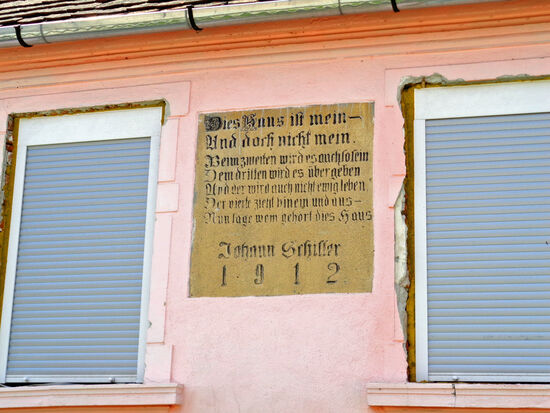 Dies Haus ist mein –
Und doch nicht mein.
Beim zweiten wird es auch so sein
Dem dritten wird es übergeben
Und der wird auch nicht ewig leben
Der vierte zieht hinein und aus –
Nun sage wem gehört dies Haus
Johann Schiller
1912